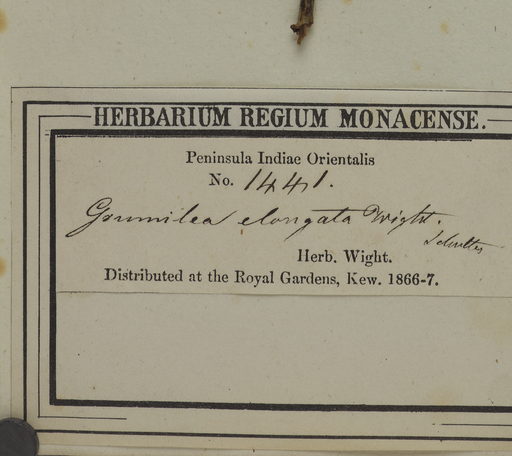 HERBARIUM REGIUM MONACENSE.
Peninsula Indiae Orientalis
No. 1441.
Grumilea elongata Wight.
Herb. Wight.
Distributed at the Royal Gardens, Kew. 1866-7.